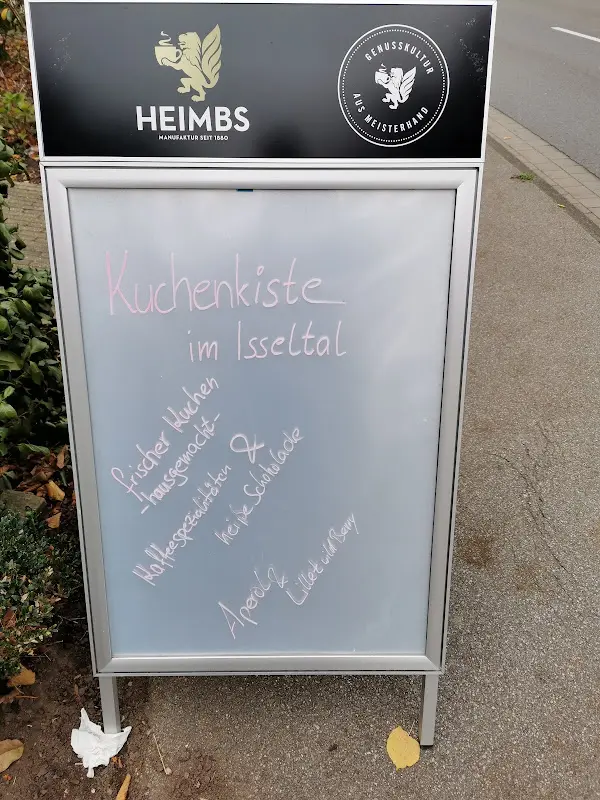 HEIMBS
MANUFAKTUR SEIT 1880
GENUSSKULTUR
AUS MEISTERHAND
Kuchenkiste
im Isseltal
frischer Kuchen
-hausgemacht-
&
Kaffeespezialitäten
heiße Schokolade
Aperol &
Lillet wild Berry